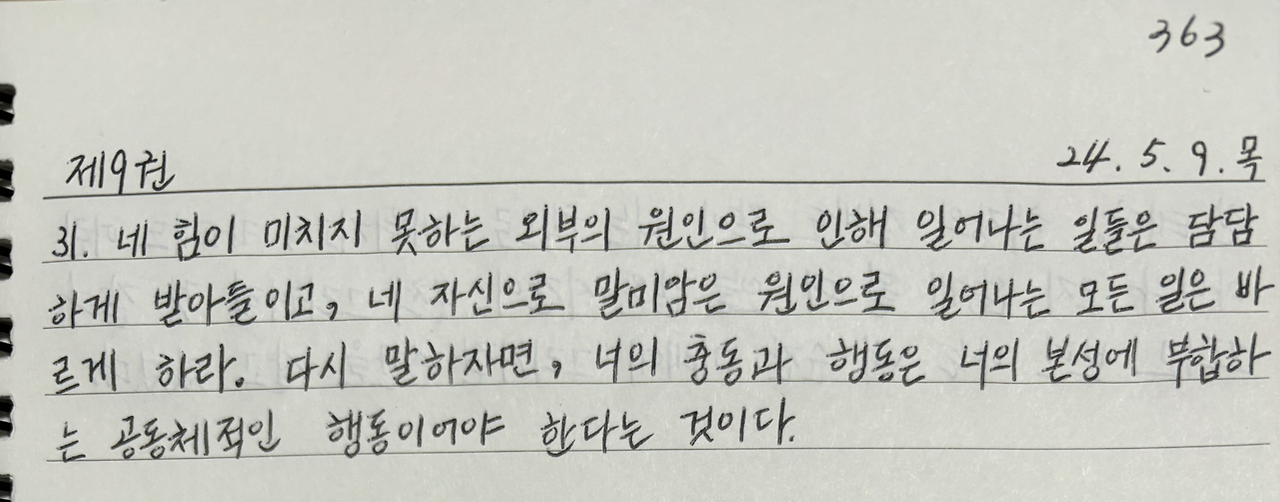 363
제9권 24. 5. 9. 목
31. 네 힘이 미치지 못하는 외부의 원인으로 인해 일어나는 일들은 담담
하게 받아들이고, 네 자신으로 말미암은 원인으로 일어나는 모든 일은 바
르게 하라. 다시 말하자면, 너의 충동과 행동은 너의 본성에 부합하
는 공동체적인 행동이어야 한다는 것이다.